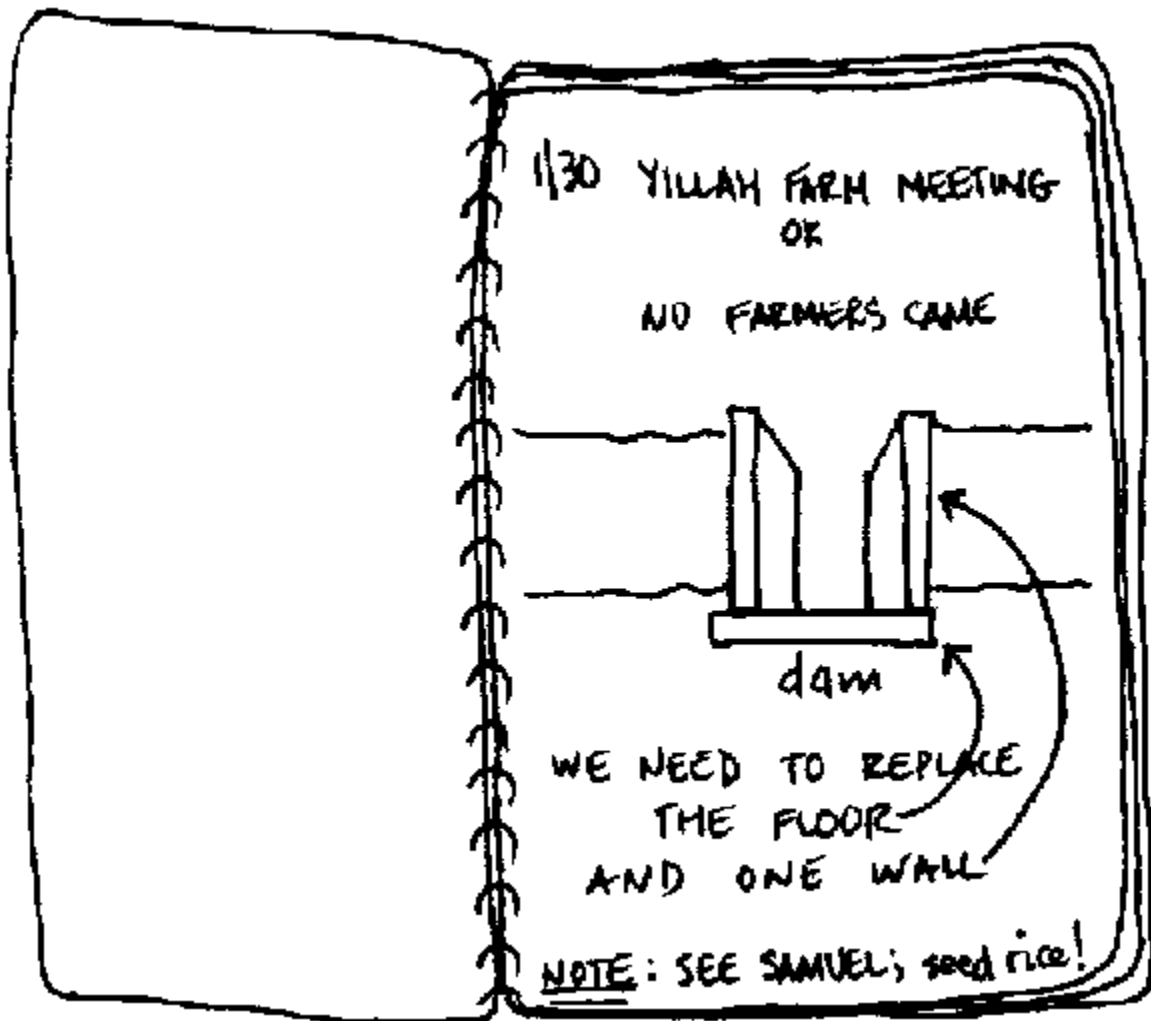 1/30 YILLAH FARM MEETING
OR
NO FARMERS CAME
dam
WE NEED TO REPLACE
THE FLOOR
AND ONE WALL
NOTE: SEE SAMUEL; seed rice!